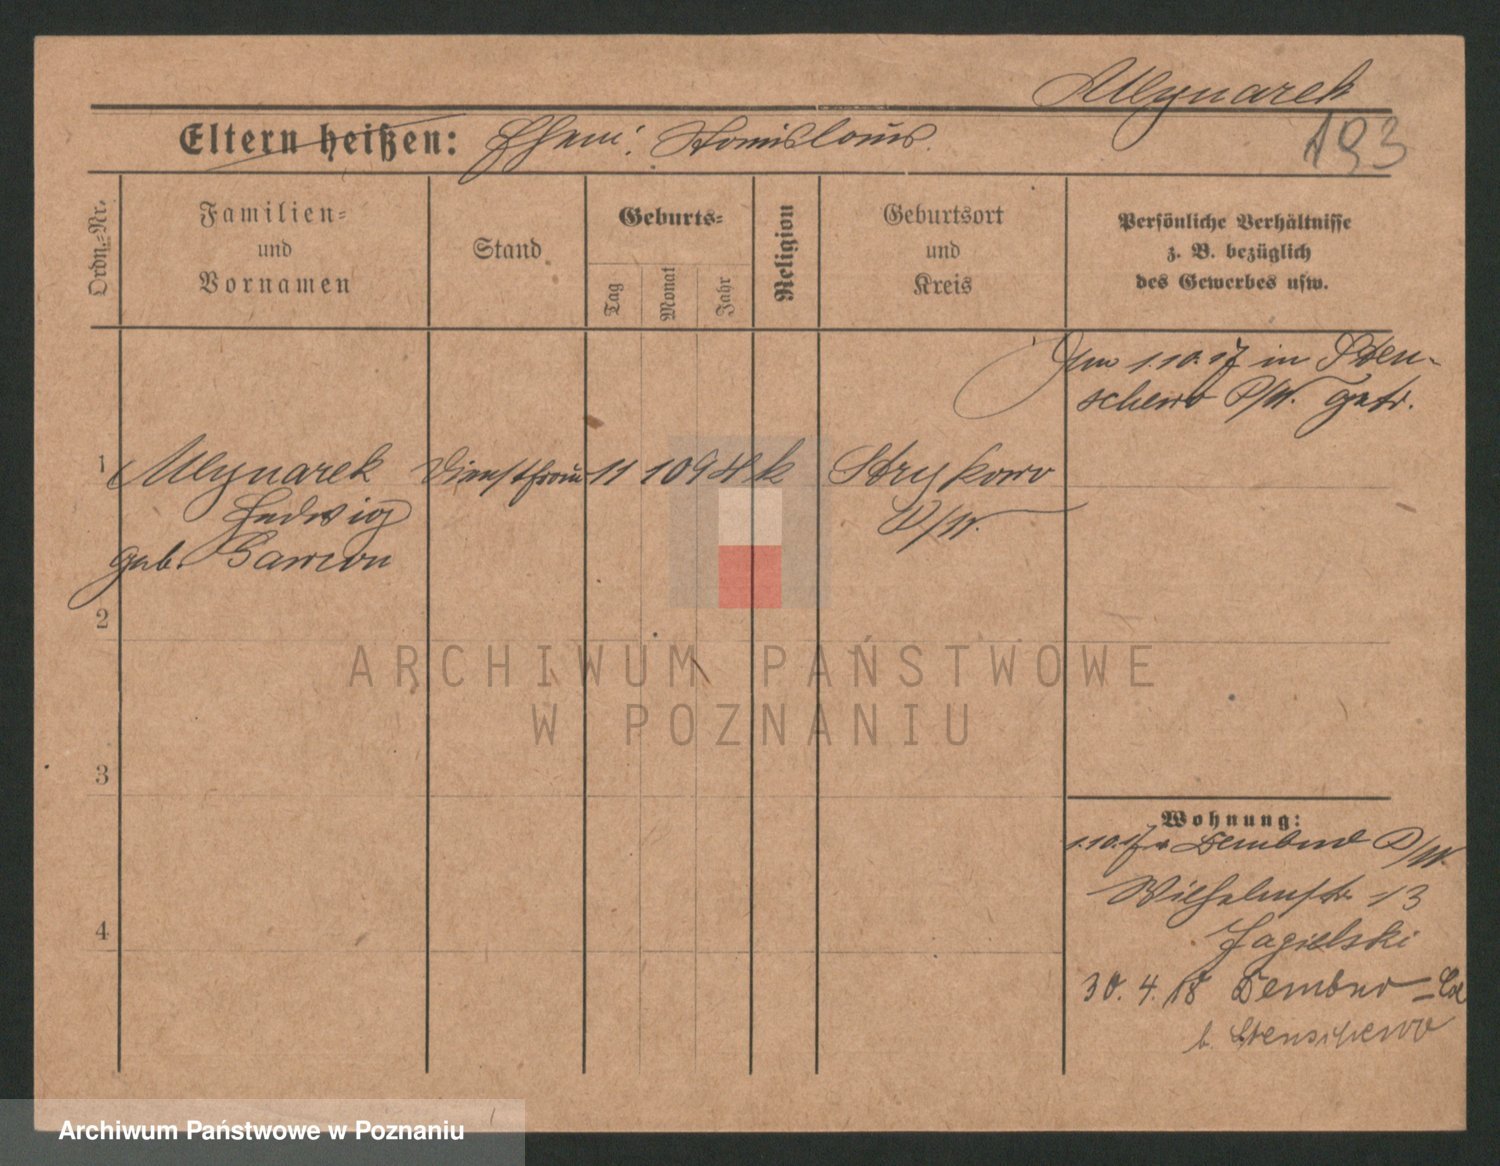 Mlynarek
193
Eltern heißen: Ehem: Stanislaus.
Ordn.-Nr.
Familien-
und
Vornamen
Stand
Geburts-
Tag
Monat
Jahr
Religion
Geburtsort
und
Kreis
Persönliche Verhältnisse
z. B. bezüglich
des Gewerbes usw.
Am 1.10.17 in Sten-
schewo P/W. getr.
1 Mlynarek Dienstfrau 11 10 94 k Strykowo
Hedwig P/W.
geb.
2
3
4
Wohnung:
1.10.17 Dembno P/W.
Wilhelmstr. 13
Jagielski
30. 4. 18 Dembno
b. Stenschewo
ARCHIWUM PAŃSTWOWE
W POZNANIU
Archiwum Państwowe w Poznaniu